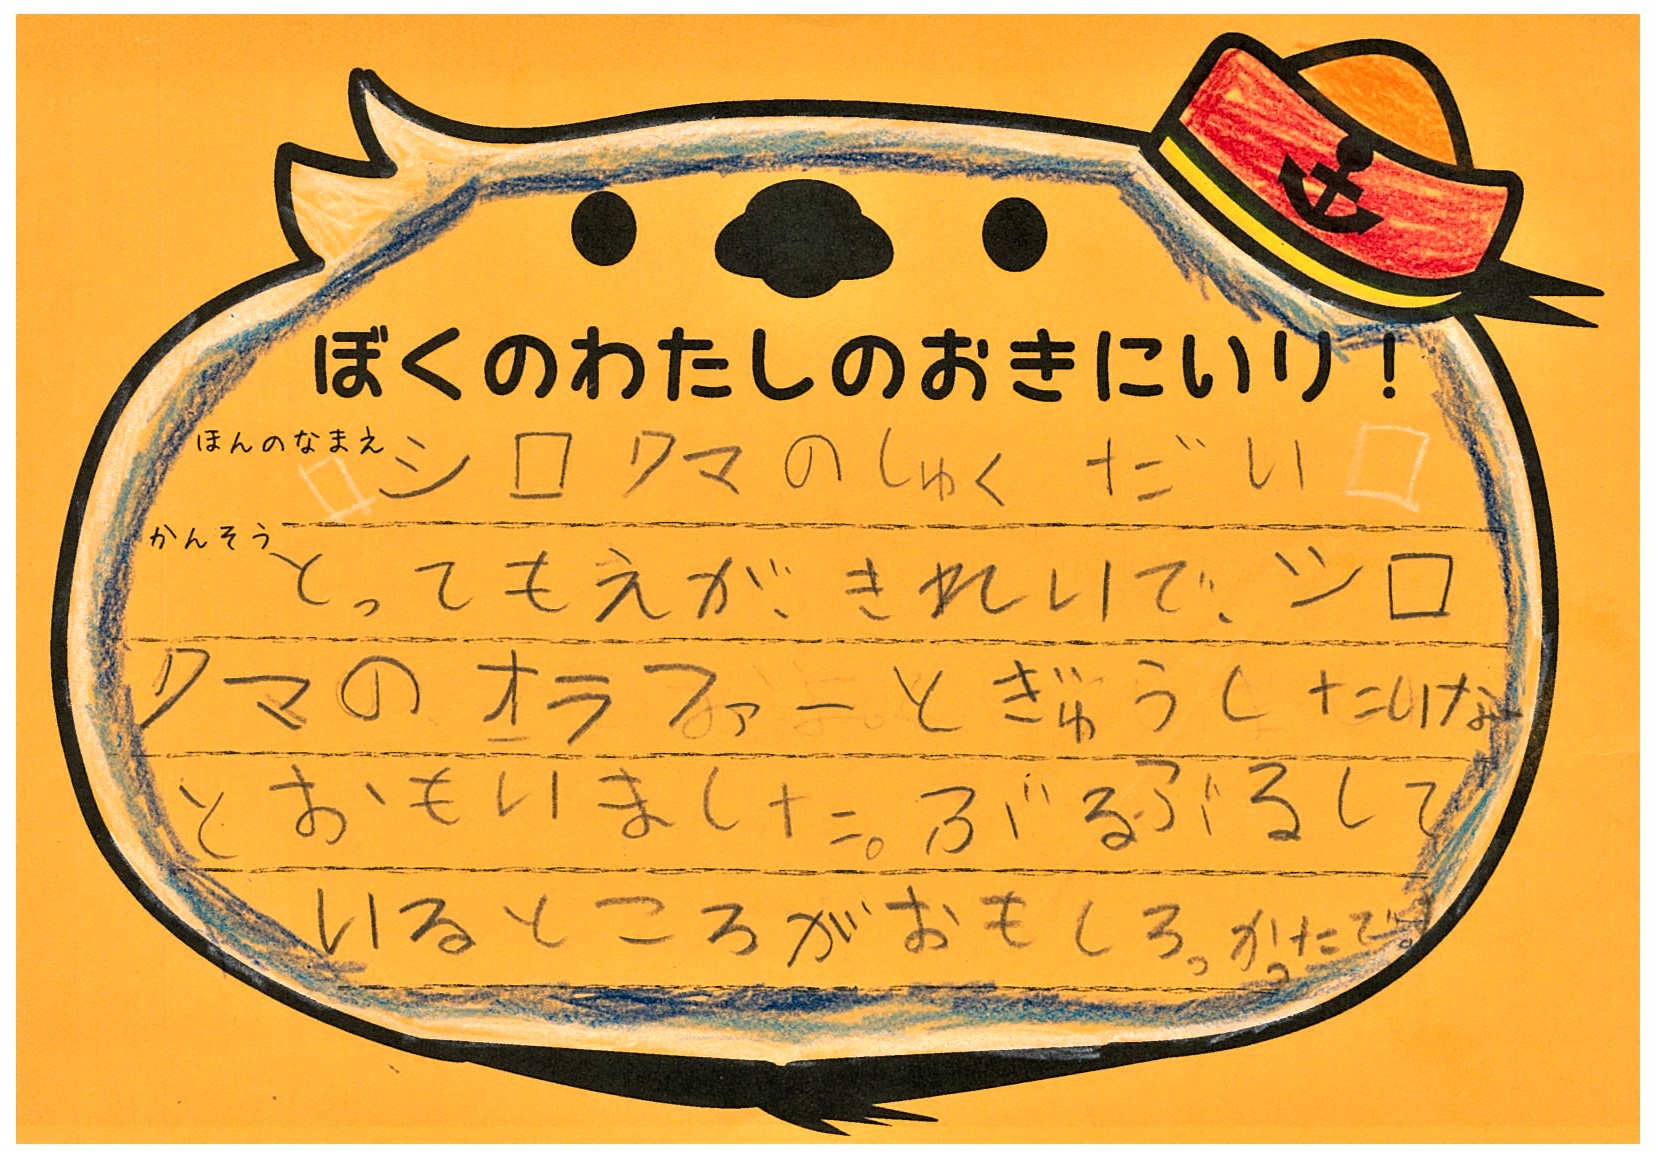 ぼくのわたしのおきにいり!
ほんのなまえ シロクマのしゅくだい
かんそう とってもえが、きれいで、シロ
クマのオラファーとぎゅうしたいな
とおもいました。ぶるぶるして
いるところがおもしろっかったです。